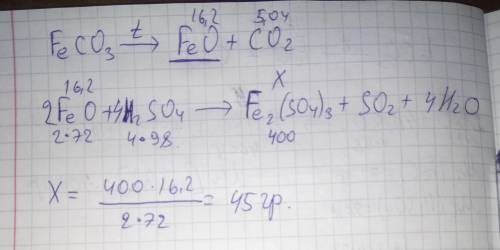 16,2 5,04
FeCO₃ →(t) FeO + CO₂
16,2 X
2FeO + 4H₂SO₄ → Fe₂(SO₄)₃ + SO₂ + 4H₂O
2·72 4·98 400
X = 400·16,2 / 2·72 = 45гр.